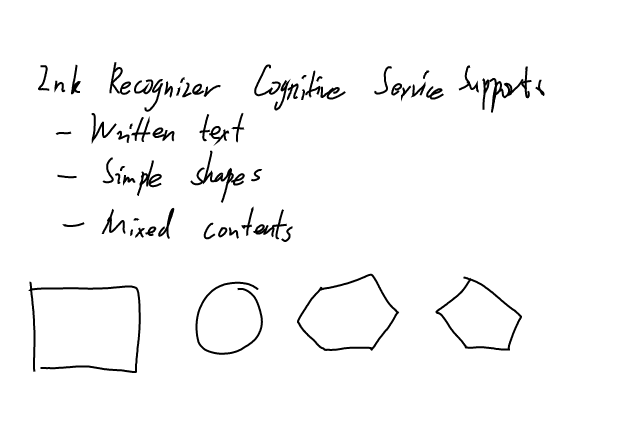 Ink Recognizer Cognitive Service Supports
- Written text
- Simple shapes
- Mixed contents